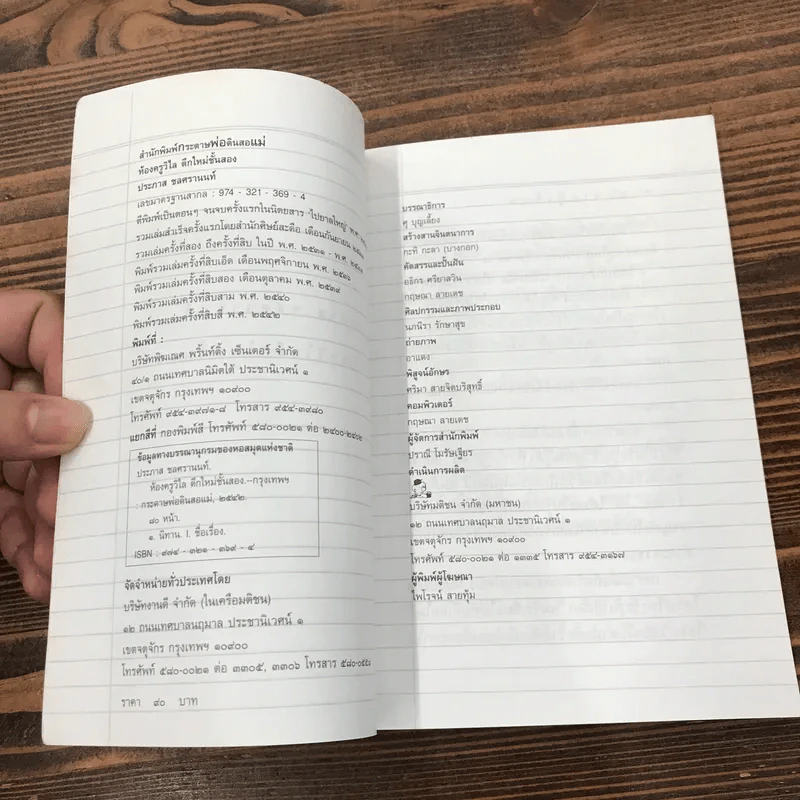 สำนักพิมพ์กระดาษพ่อดินสอแม่
ห้องครูวิไล ตึกใหม่ชั้นสอง
ประภาส ชลศรานนท์
เลขมาตรฐานสากล : 974 - 321 - 369 - 4
ตีพิมพ์เป็นตอนๆ จนจบครั้งแรกในนิตยสาร "ไปยาลใหญ่" พ.ศ.
รวมเล่มสำเร็จครั้งแรกโดยสำนักศิษย์สะดือ เดือนกันยายน
รวมเล่มครั้งที่สอง ถึงครั้งที่สิบ ในปี พ.ศ. ๒๕๓๑ - พ.ศ.
พิมพ์รวมเล่มครั้งที่สิบเอ็ด เดือนพฤศจิกายน พ.ศ.
พิมพ์รวมเล่มครั้งที่สิบสอง เดือนตุลาคม พ.ศ. ๒๕๓๙
พิมพ์รวมเล่มครั้งที่สิบสาม พ.ศ. ๒๕๔๐
พิมพ์รวมเล่มครั้งที่สิบสี่ พ.ศ. ๒๕๔๒
พิมพ์ที่ :
บริษัทพิฆเณศ พริ้นท์ติ้ง เซ็นเตอร์ จำกัด
๔๐/๑ ถนนเทศบาลนิมิตใต้ ประชานิเวศน์ ๑
เขตจตุจักร กรุงเทพฯ ๑๐๙๐๐
โทรศัพท์ ๙๕๔-๓๙๗๑-๘ โทรสาร ๙๕๔-๓๙๘๐
แยกสีที่ กองพิมพ์สี โทรศัพท์ ๕๘๐-๐๐๒๑ ต่อ ๒๔๐๐-๒๔๐๒
ข้อมูลทางบรรณานุกรมของหอสมุดแห่งชาติ
ประภาส ชลศรานนท์.
ห้องครูวิไล ตึกใหม่ชั้นสอง.--กรุงเทพฯ
: กระดาษพ่อดินสอแม่, ๒๕๔๒.
๘๐ หน้า.
๑. นิทาน. I. ชื่อเรื่อง.
ISBN : ๙๗๔ - ๓๒๑ - ๓๖๙ - ๔
จัดจำหน่ายทั่วประเทศโดย
บริษัทงานดี จำกัด (ในเครือมติชน)
๑๒ ถนนเทศบาลนฤมาล ประชานิเวศน์ ๑
เขตจตุจักร กรุงเทพฯ ๑๐๙๐๐
โทรศัพท์ ๕๘๐-๐๐๒๑ ต่อ ๓๓๐๕, ๓๓๐๖ โทรสาร
ราคา ๙๐ บาท
บรรณาธิการ
ศุ บุญเลี้ยง
สร้างสานจินตนาการ
กะทิ กะลา (บางกอก)
คัดสรรและปั้นฝัน
อธิกร ศรียาสวิน
กฤษณา ลายเดช
ศิลปกรรมและภาพประกอบ
นภนิรา รักษาสุข
ถ่ายภาพ
อาแดง
พิสูจน์อักษร
ศริมา สายจิตบริสุทธิ์
คอมพิวเตอร์
กฤษณา ลายเดช
ผู้จัดการสำนักพิมพ์
ปราณี โมรัษเฐียร
ดำเนินการผลิต
บริษัทมติชน จำกัด (มหาชน)
๑๒ ถนนเทศบาลนฤมาล ประชานิเวศน์ ๑
เขตจตุจักร กรุงเทพฯ ๑๐๙๐๐
โทรศัพท์ ๕๘๐-๐๐๒๑ ต่อ ๑๓๓๕ โทรสาร ๙๕๔-๓๑๖๗
ผู้พิมพ์ผู้โฆษณา
ไพโรจน์ สายทุ้ม